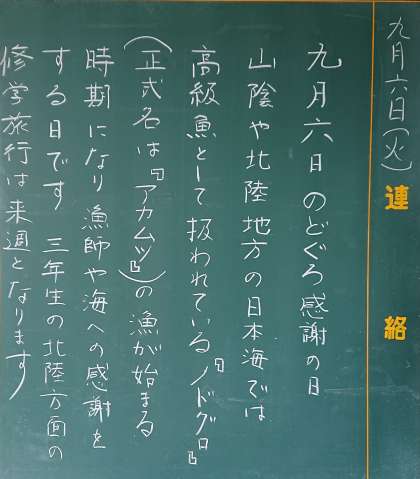 九月六日(火)
連絡
九月六日 のどぐろ感謝の日
山陰や北陸地方の日本海では
高級魚として扱われている『ノドグロ』
(正式名は『アカムツ』)の漁が始まる
時期になり漁師や海への感謝を
する日です 三年生の北陸方面の
修学旅行は来週となります